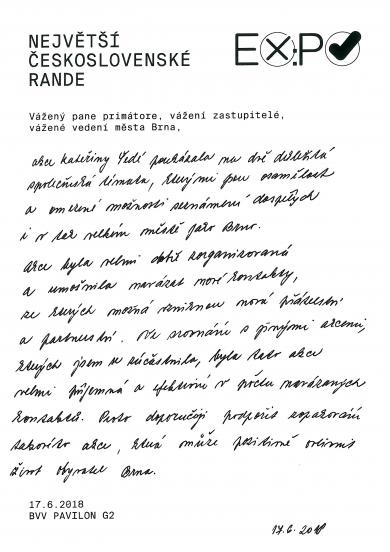 NEJVĚTŠÍ
ČESKOSLOVENSKÉ
RANDE
EX:PO
Vážený pane primátore, vážení zastupitelé,
vážené vedení města Brna,
akce Kateřiny Šedé poukázala na dvě důležitá
společenská témata, kterými jsou osamělost
a omezené možnosti seznámení dospělých
i v tak velkém městě jako Brno.
Akce byla velmi dobře zorganizovaná
a umožnila navázat nové kontakty,
ze kterých možná vzniknou nová přátelství
a partnerství. Ve srovnání s jinými akcemi,
kterých jsem se zúčastnila, byla tato akce
velmi příjemná a efektivní v počtu navázaných
kontaktů. Proto doporučuji podpořit zopakování
takovéto akce, která může pozitivně ovlivnit
život obyvatel Brna.
17.6.2018
BVV PAVILON G2
17.6.2018